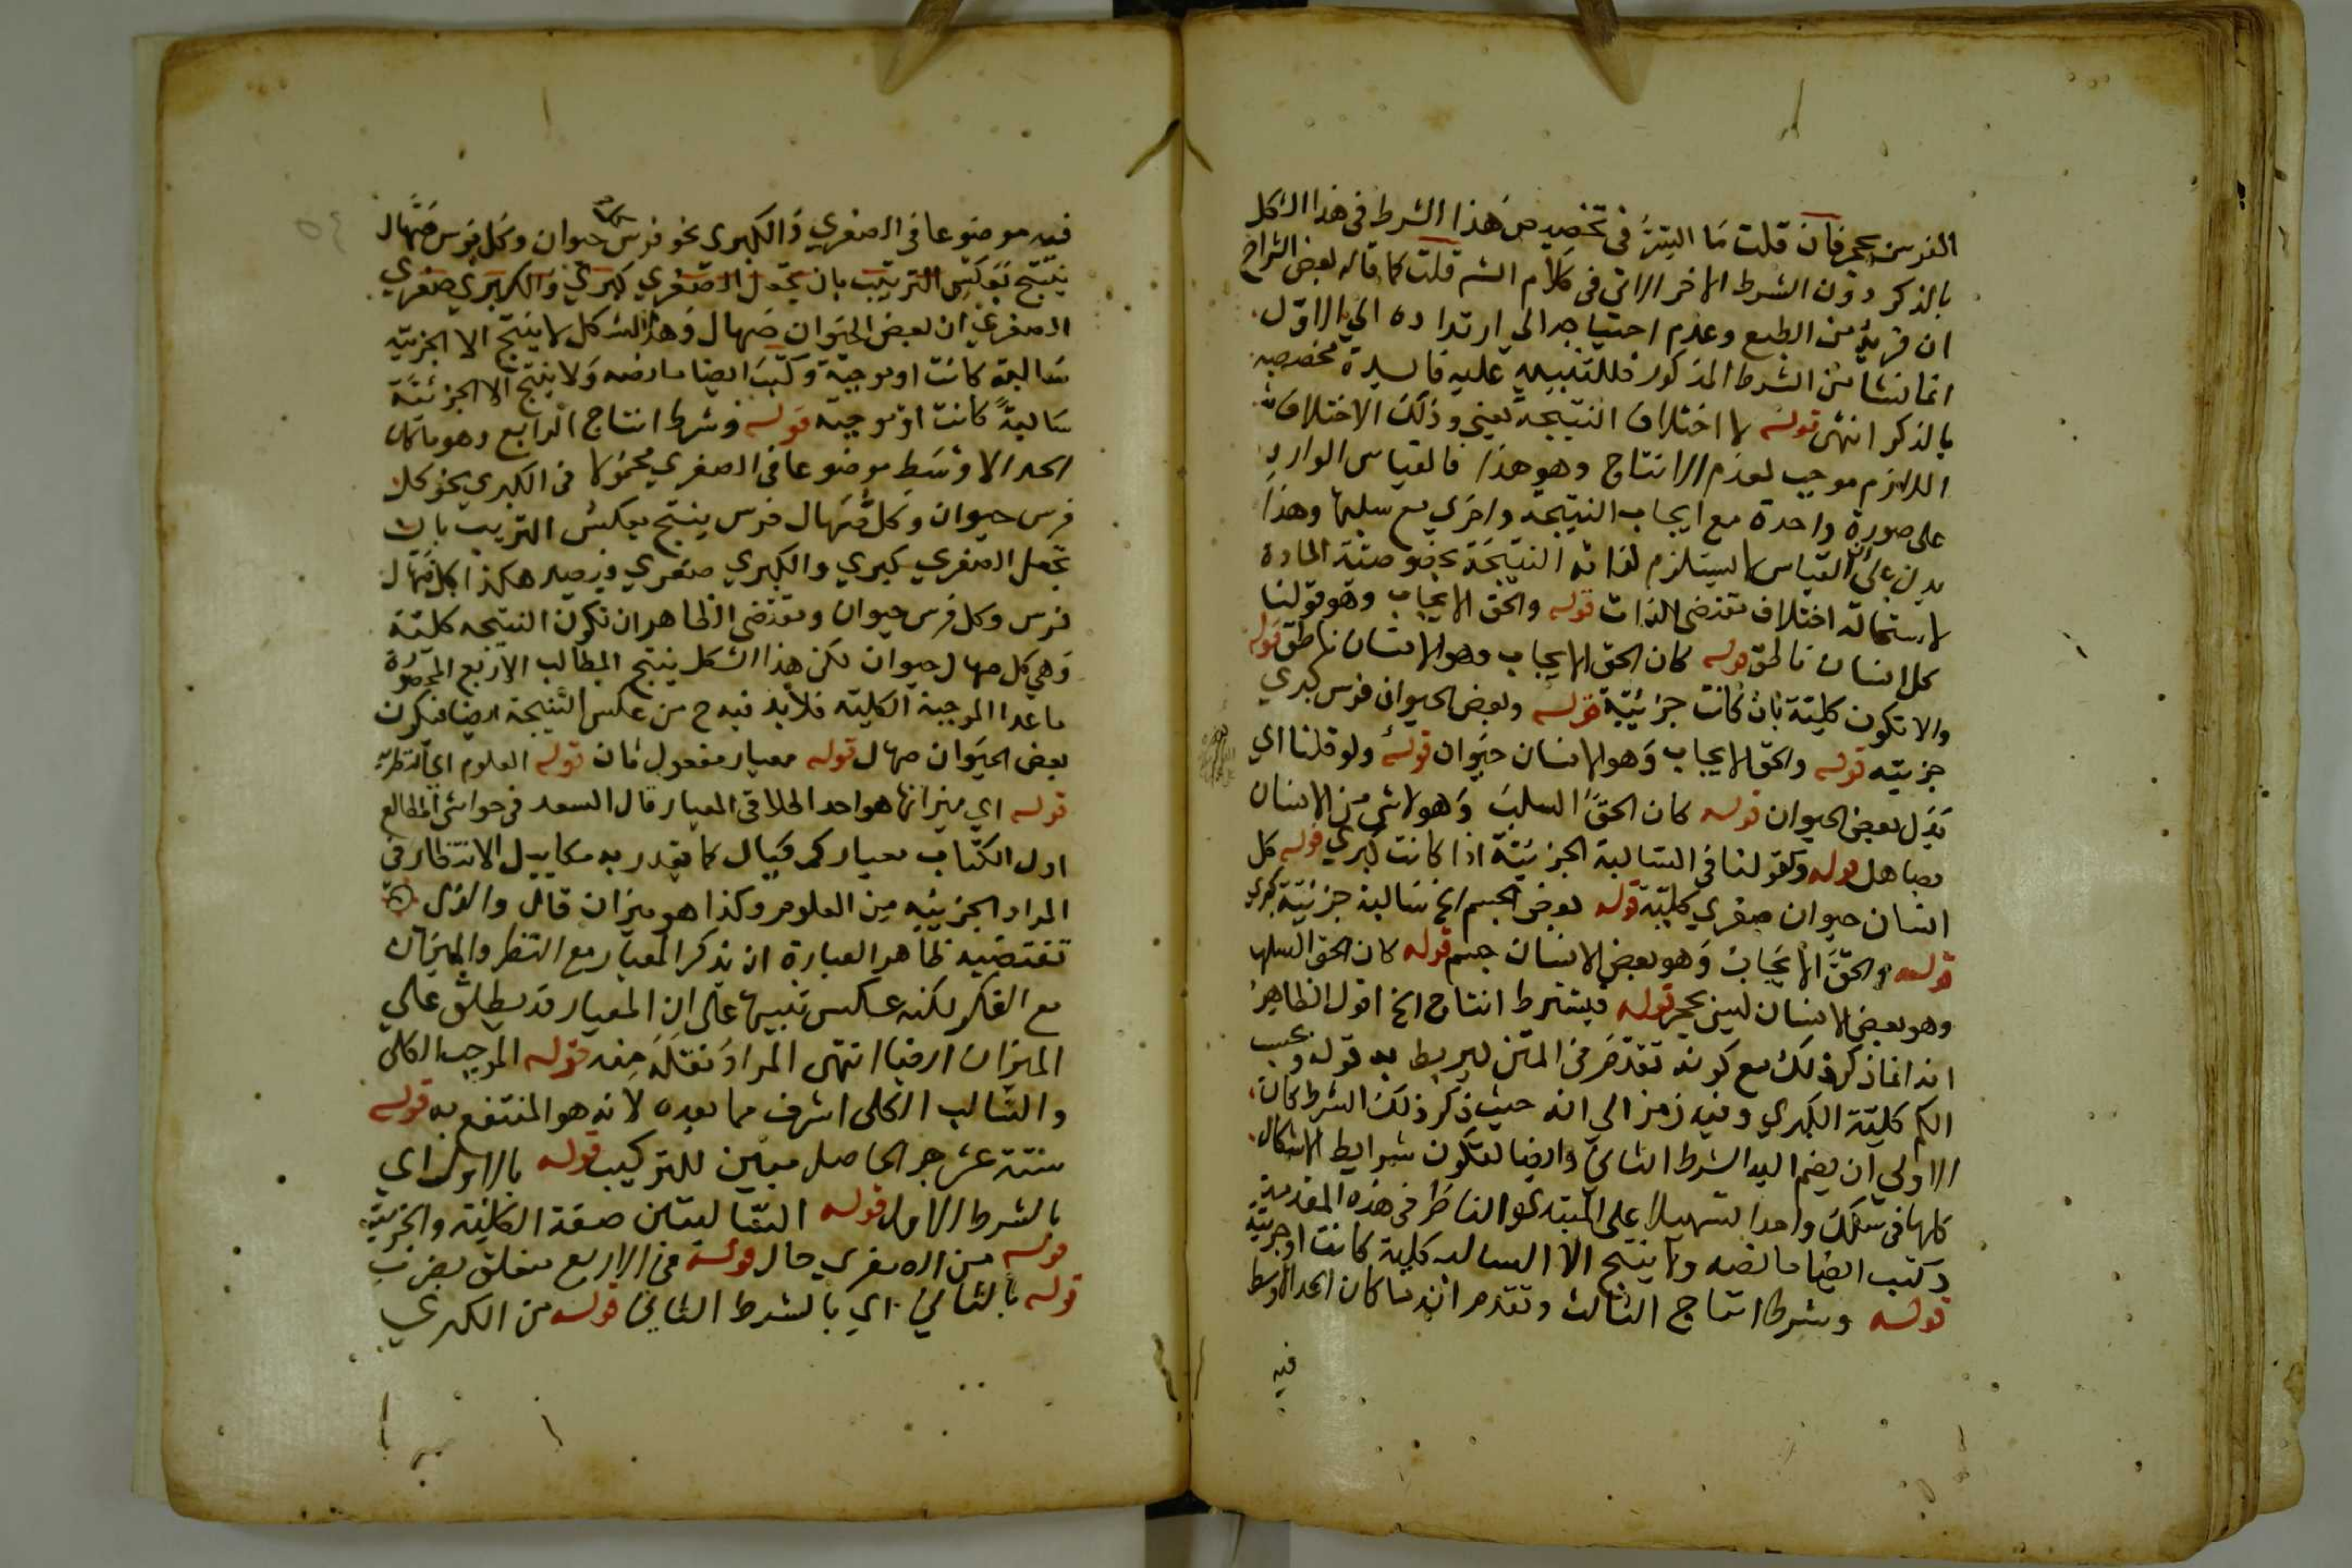 الفرس بحجر فان قلت ما السر في تخصيص هذا الشرط في هذا الشكل
بالذكر دون الشرط الاخر الاتي في كلام الش قلت كما قاله بعض الشراح
ان قربه من الطبع وعدم احتياجه الى ارتداده الى الاول
انما نشا من الشرط المذكور فللتنبيه عليه فايدة تخصيصه
بالذكر انتهى قوله لاختلاف النتيجة يعني وذلك الاختلاف
اللازم موجب لعدم الانتاج وهو هذا فالقياس الوارد
على صورة واحدة مع ايجاب النتيجة واخري مع سلبها وهذا
يدل على ان القياس لا يستلزم لذاته النتيجة بخصوصية المادة
لاستحالة اختلاف مقتضى الذات قوله والحق الايجاب وهو قولنا
كل انسان ناطق قوله كان الحق الايجاب وهو الانسان ناطق قوله
والا تكون كلية بان كانت جزئية قوله وبعض الحيوان فرس كبري
جزئيه قوله والحق الايجاب وهو الانسان حيوان قوله ولو قلنا اي
بدل بعض الحيوان قوله كان الحق السلب وهو لا شي من الانسان
بصاهل قوله وكقولنا في السالبة الجزئية اذا كانت كبري قوله كل
انسان حيوان صغري كلية قوله بعض الجسم الخ سالبة جزئية كبري
قوله والحق الايجاب وهو بعض الانسان جسم قوله كان الحق السلب
وهو بعض الانسان ليس بحجر قوله فيشترط انتاج الخ اقول الظاهر
انه انما ذكر ذلك مع كونه تقدم في المتن ليربط به قوله وبحسب
الكم كلية الكبري وفيه رمز الي انه حيث ذكر ذلك الشرط كان
الاولي ان يضم اليه الشرط الثاني وايضا لتكون شرايط الاشكال
كلها في سلك واحد تسهيلا على المبتدي والناظر في هذه المقدمة
وكتب ايضا ما نصه ولا ينتج الا السالبه كلية كانت او جزئية
قوله وشرط انتاج الثالث وتقدم انه ما كان الحد الاوسط
فيه
فيه موضوعا في الصغري والكبري نحو كل فرس حيوان وكل فرس صهال
ينتج بعكس الترتيب بان تجعل الصغري كبري والكبري صغري
الصغري ان بعض الحيوان صهال وهذا الشكل لا ينتج الا الجزئيه
سالبة كانت او موجبة وكتب ايضا ما نصه ولا ينتج الا الجزئية
سالبة كانت او موجبه قوله وشرط انتاج الرابع وهو ما كان
الحد الاوسط موضوعا في الصغري محمولا في الكبري نحو كل
فرس حيوان وكل صهال فرس ينتج بعكس الترتيب بان
تجعل الصغري كبري والكبري صغري ويصير هكذا كل صهال
فرس وكل فرس حيوان ومقتضى الظاهر ان تكون النتيجه كلية
وهي كل صهال حيوان لكن هذا الشكل ينتج المطالب الاربع المحصورة
ما عدا الموجبة الكلية فلا بد فيه ح من عكس النتيجة ايضا فتكون
بعض الحيوان صهال قوله معيار مفعول ثان قوله العلوم اي النظرية
قوله اي ميزانها هو احد اطلاقي المعيار قال السعد في حواشي المطالع
اول الكتاب معيار كمكيال كما يقدر به مكاييل الانتظار في
المراد الجزئيه من العلوم وكذا هو ميزان قال والذي
تقتضيه ظاهر العبارة ان يذكر المعيار مع النظر والميزان
مع الفكر لكنه عكس تنبيها على ان المعيار قد يطلق على
الميزان ايضا انتهى المراد نقله منه قوله الموجب الكلى
والسالب الكلى اشرف مما بعده لانه هو المنتفع به قوله
ستة عشر هو الحاصل مبين للتركيب قوله بالاول اي
بالشرط الاول قوله السالبتين صفة الكلية والجزئية
قوله من الصغري حال قوله في الاربع متعلق بضرب
قوله بالثاني اي بالشرط الثاني قوله من الكبري